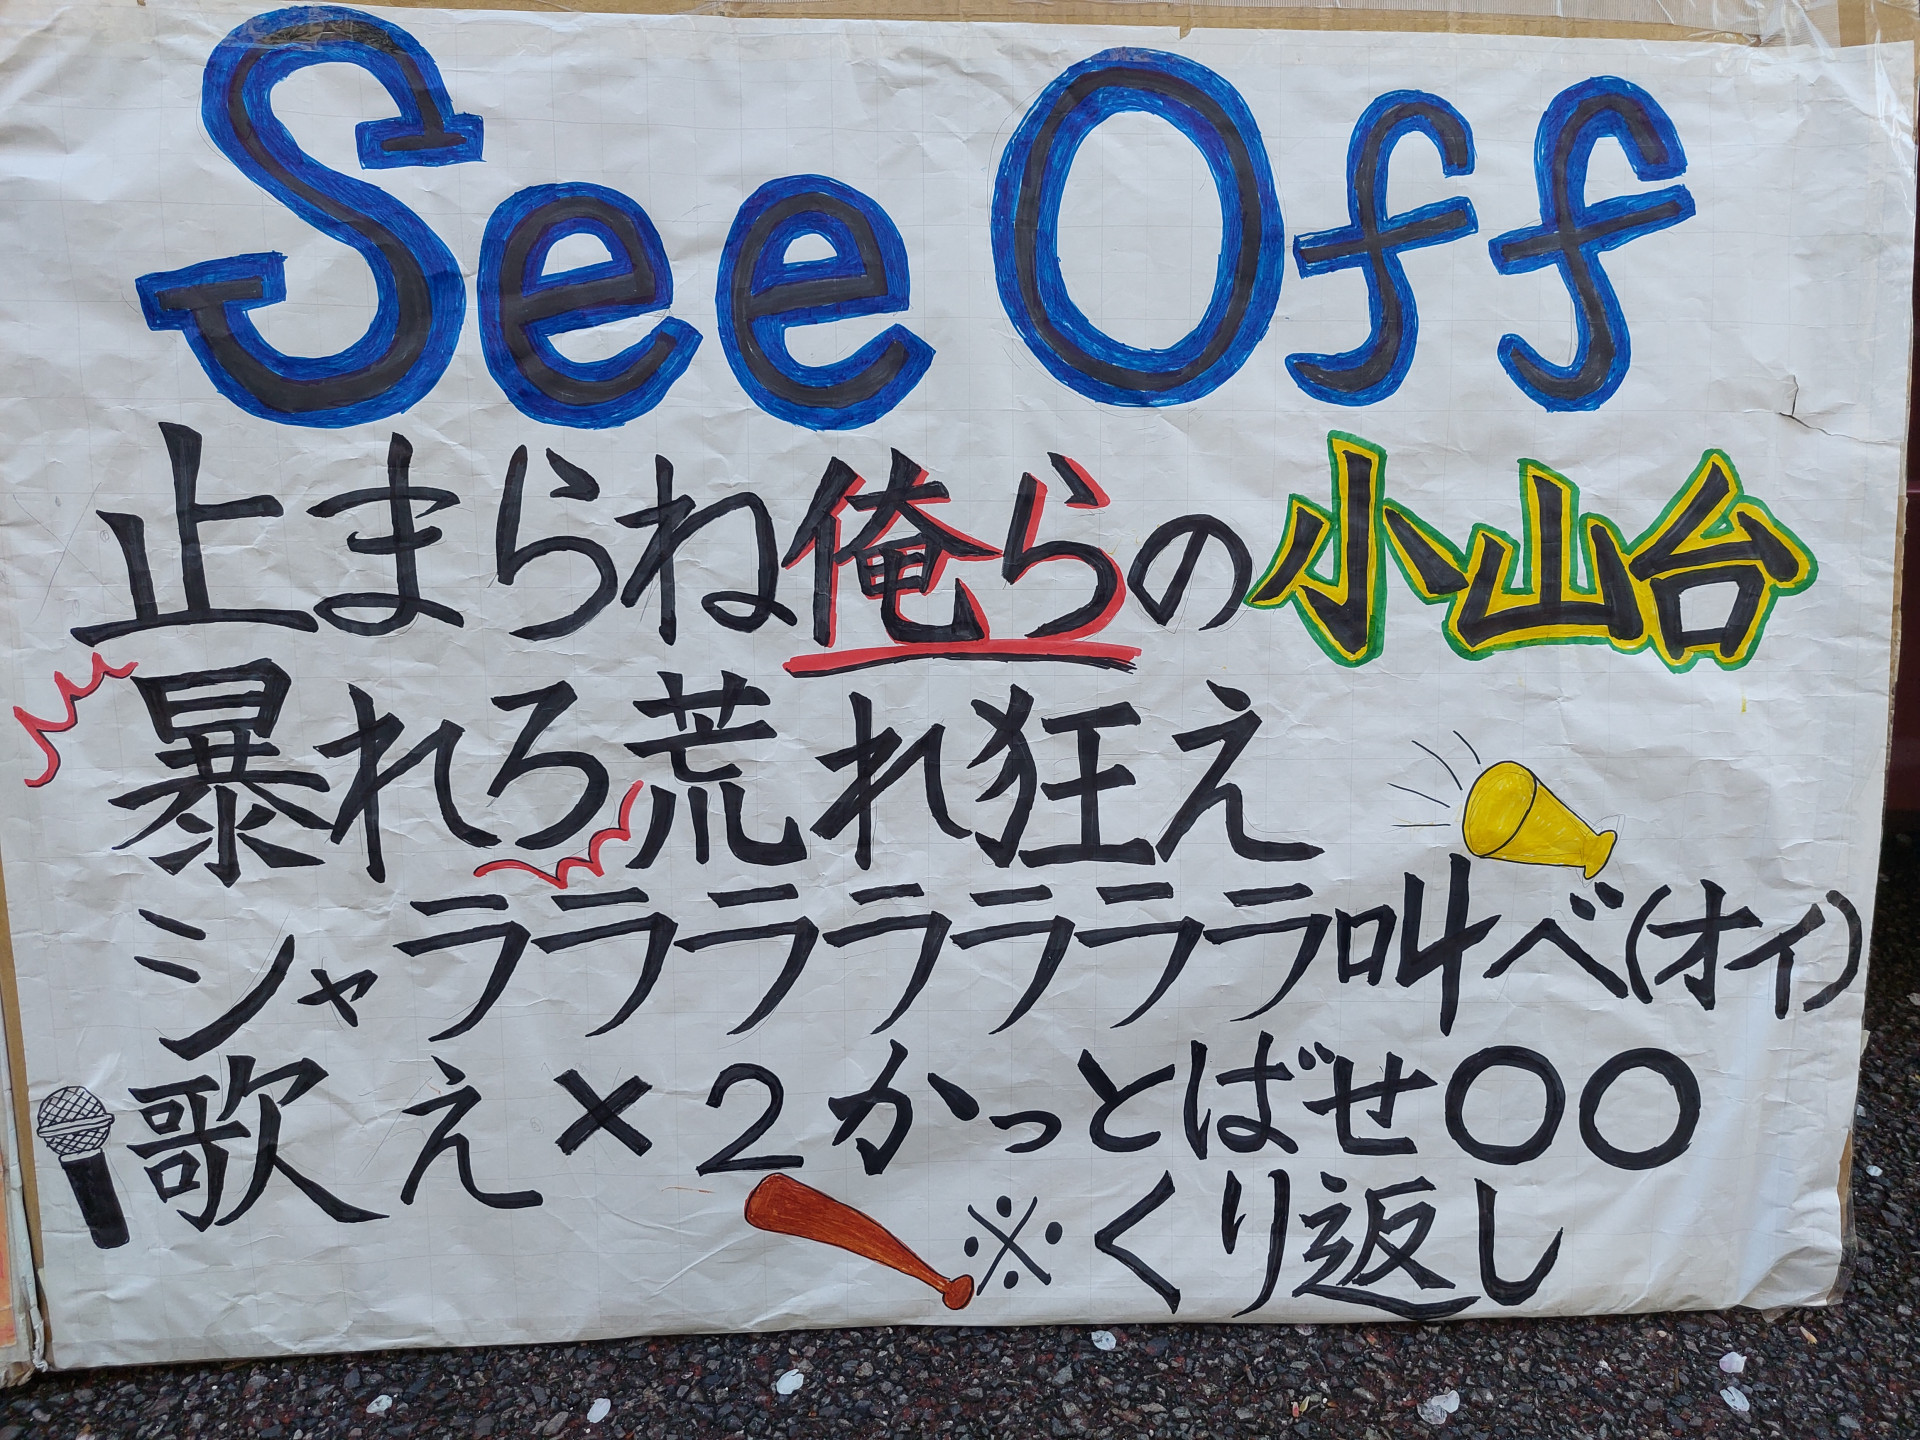 See Off
止まらね俺らの小山台
暴れろ荒れ狂え
シャララララララ叫べ(オイ)
歌え×2かっとばせ〇〇
※くり返し